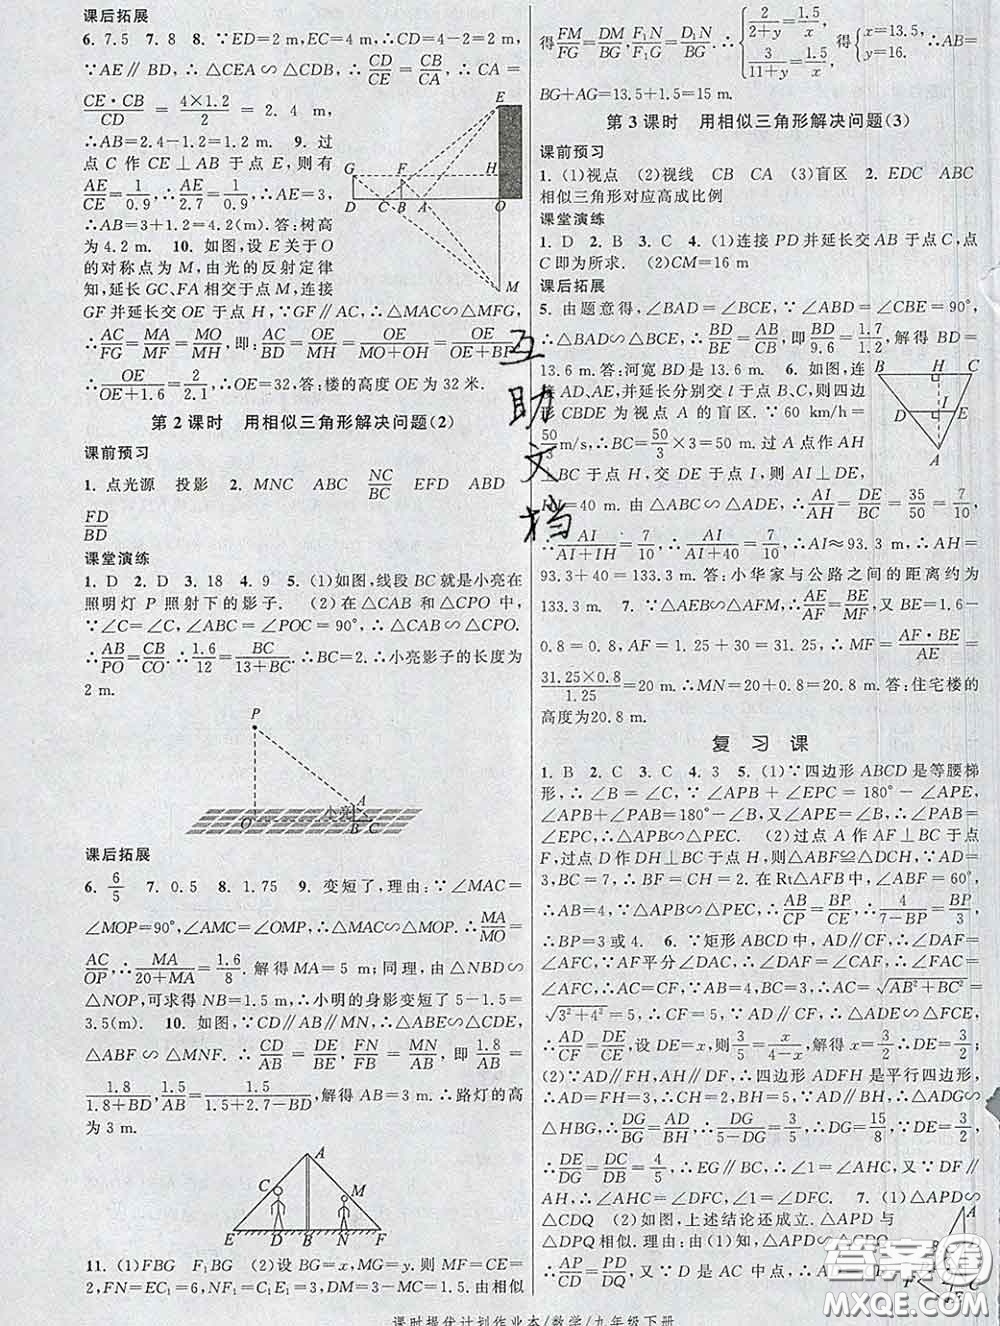 课后拓展
6. 7.5 7. 8 8. ∵ED=2 m,EC=4 m,∴CD=4-2=2 m,
∵AE∥BD,∴△CEA∽△CDB,∴CD/CB=CB/CA,∴CA=
CE·CB/CD=4×1.2/2=2.4 m,
∴AB=2.4-1.2=1.2 m 9. 过
点C作CE⊥AB于点E,则有
AE/CE=1/0.9,∴AE/2.7=1/0.9,∴AE=3,
∴AB=3+1.2=4.2(m).答:树高
为4.2 m. 10. 如图,设E关于O
的对称点为M,由光的反射定律
知,延长GC、FA相交于点M,连接
GF并延长交OE于点H,∵GF∥AC,∴△MAC∽△MFG,
∴AC/FG=MA/MF=MO/MH,即:AC/BD=OE/MH=OE/(MO+OH)=OE/(OE+BF),
∴OE/(OE+1.6)=2/2.1,∴OE=32,答:楼的高度OE为32米.
G F H E D C B A O M
第2课时 用相似三角形解决问题(2)
课前预习
1. 点光源 投影 2. MNC ABC NC/BC EFD ABD
FD/BD
课堂演练
1. D 2. D 3. 18 4. 9 5. (1)如图,线段BC就是小亮在
照明灯P照射下的影子. (2)在△CAB和△CPO中,
∵∠C=∠C,∠ABC=∠POC=90°,∴△CAB∽△CPO.
∴AB/PO=CB/CO.∴1.6/12=BC/(13+BC).∴BC=2.小亮影子的长度为
2 m.
P O 小亮 A B C
课后拓展
6. 6/5 7. 0.5 8. 1.75 9. 变短了,理由:∵∠MAC=
∠MOP=90°,∠AMC=∠OMP,∴△MAC∽△MOP,∴MA/MO=
AC/OP,∴MA/(20+MA)=1.6/8.解得MA=5 m;同理,由△NBD∽
△NOP,可求得NB=1.5 m,∴小明的身影变短了5-1.5=
3.5(m). 10. 如图,∵CD∥AB∥MN,∴△ABE∽△CDE,
△ABF∽△MNF.∴CD/AB=DE/BE,FN/FB=MN/AB,即1.8/AB=
1.8/(1.8+BD),1.5/AB=1.5/(1.5+2.7-BD),解得AB=3 m.∴路灯的高
为3 m.
A C M E D B N F
11. (1)FBG F₁BG (2)设BG=x,MG=y.则FM=CE=
2,FN=EC₁=6,GN=y-5,DM=3-MC=1.5.由相似
得FM/FG=DM/BG,F₁N/F₁G=D₁N/BG.∴{2/(2+y)=1.5/x, 3/(11+y)=1.5/x,得{x=13.5, y=16.∴AB=
BG+AG=13.5+1.5=15 m.
第3课时 用相似三角形解决问题(3)
课前预习
1. (1)视点 (2)视线 CB CA (3)盲区 2. EDC ABC
相似三角形对应高成比例
课堂演练
1. D 2. B 3. C 4. (1)连接PD并延长交AB于点C,点
C即为所求. (2)CM=16 m
课后拓展
5. 由题意得,∠BAD=∠BCE,∵∠ABD=∠CBE=90°,
∴△BAD∽△BCE,∴BD/BE=AB/CB,即BD/9.6=1.7/1.2,解得BD=
13.6 m.答:河宽BD是13.6 m. 6. 如图,连
接AD、AE,并延长分别交l于点B、C,则四边
形CBDE为视点A的盲区.∵60 km/h=
50/3 m/s,∴BC=50/3×3=50 m.过点A作AH
⊥BC于点H,交DE于点I,则AI⊥DE,
IH=40 m.由△ABC∽△ADE,∴AI/AH=DE/BC=35/50=7/10
∴AI/(AI+IH)=7/10,∴AI/(AI+40)=7/10,∴AI≈93.3 m,∴AH=
93.3+40=133.3 m.答:小华家与公路之间的距离约为
133.3 m. 7. ∵△AEB∽△AFM,∴AE/AF=BE/MF,又BE=1.6-
0.8=0.8,AF=1.25+30=31.25,∴MF=AF·BE/AE=
31.25×0.8/1.25=20 m.∴MN=20+0.8=20.8 m.答:住宅楼的
高度为20.8 m.
B H C D I E A
复习课
1. B 2. C 3. C 4. 3 5. (1)∵四边形ABCD是等腰梯
形,∴∠B=∠C,∵∠APB+∠EPC=180°-∠APE,
∠APB+∠BAP=180°-∠B,又∠APE=∠B,∴∠PAB=
∠EPC,∴△APB∽△PEC. (2)过点A作AF⊥BC于点
F,过点D作DH⊥BC于点H,则△ABF≌△DCH,∵AD=
3,BC=7,∴BF=CH=2.在Rt△AFB中,∠ABF=60°,
∴AB=4,∵△APB∽△PEC,∴AB/CP=BP/CE,∴4/(7-BP)=BP/3,
∴BP=3或4. 6. ∵矩形ABCD中,AD∥CF,∴∠DAF=
∠AFC,∵AF平分∠DAC,∴∠DAF=∠CAF,∴∠FAC=
∠AFC,∴AC=CF,∵AB=4,BC=3,∴AC=√(AB²+BC²)=
√(3²+4²)=5,∴CF=5,∵AD∥CF,∴△ADE∽△FCE,
∴AD/CF=DE/CE,设DE=x,则3/5=x/(4-x),解得x=3/2,∴DE=3/2;
(2)∵AD∥FH,AF∥DH,∴四边形ADFH是平行四边形,
∴AD=FH=3,∴CH=2,BH=5,∵AD∥BH,∴△ADG∽
△HBG,∴DG/BG=AD/BH,∴DG/(5-DG)=3/5,∴DG=15/8,∵DE=3/2,
∴DE/DG=DC/DB=4/5,∴EG∥BC,∴∠1=∠AHC,又∵DF∥
AH,∴∠AHC=∠DFC,∠1=∠DFC. 7. (1)△APD∽
△CDQ (2)如图,上述结论还成立.△APD与
△DPQ相似.理由:由(1)知,△APD∽△CDQ
∴AP/CD=PD/DQ,又∵D是AC中点,∴AD=CD,
课时提优计划作业本/数学/九年级下册
互助文档
答案圈
MXQE.COM